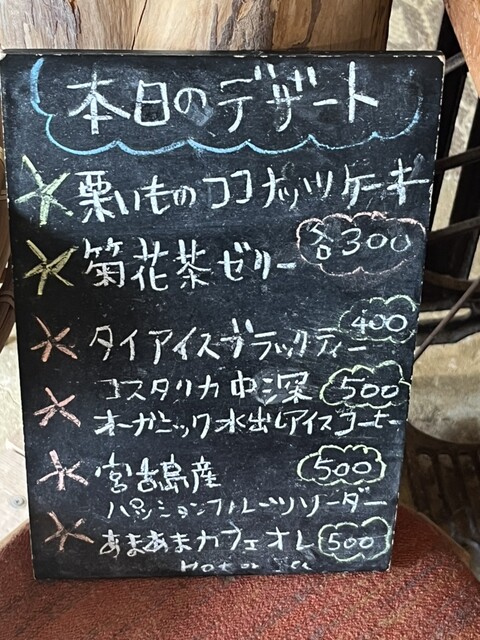 本日のデザート
栗いものココナッツケーキ
各300
菊花茶ゼリー
400
タイアイスブラックティー
コスタリカ中深 500
オーガニック水出しアイスコーヒー
宮古島産 500
パッションフルーツソーダー
あまあまカフェオレ 500
Hot or Ice